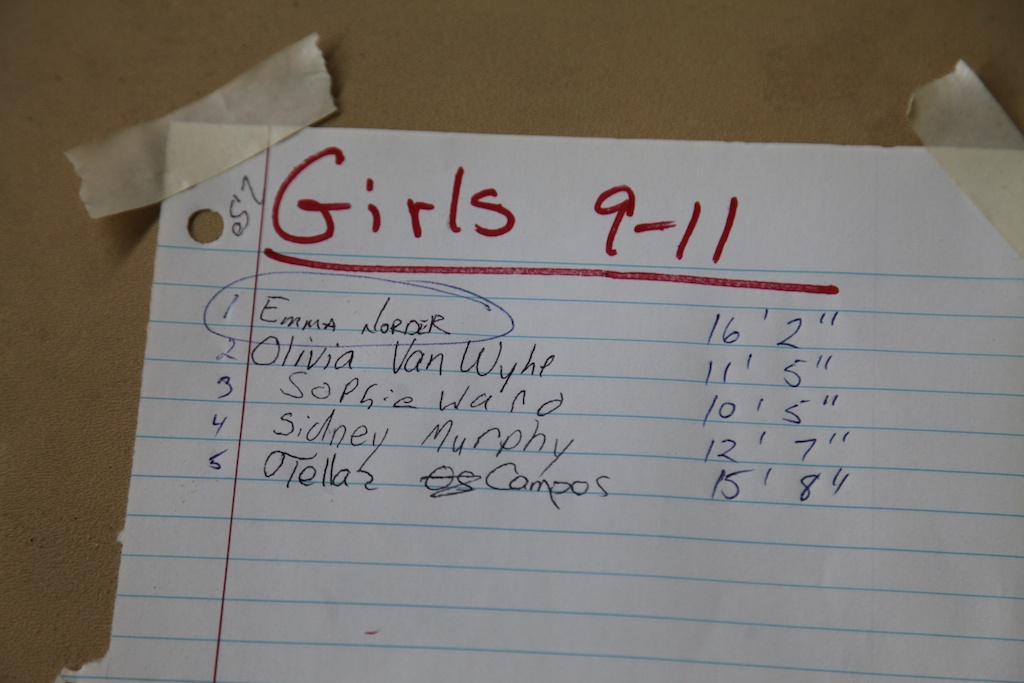 Girls 9-11
1 Emma Norder 16' 2"
2 Olivia Van Wyhe 11' 5"
3 Sophie Ward 10' 5"
4 Sidney Murphy 12' 7"
5 Campos 15' 8"